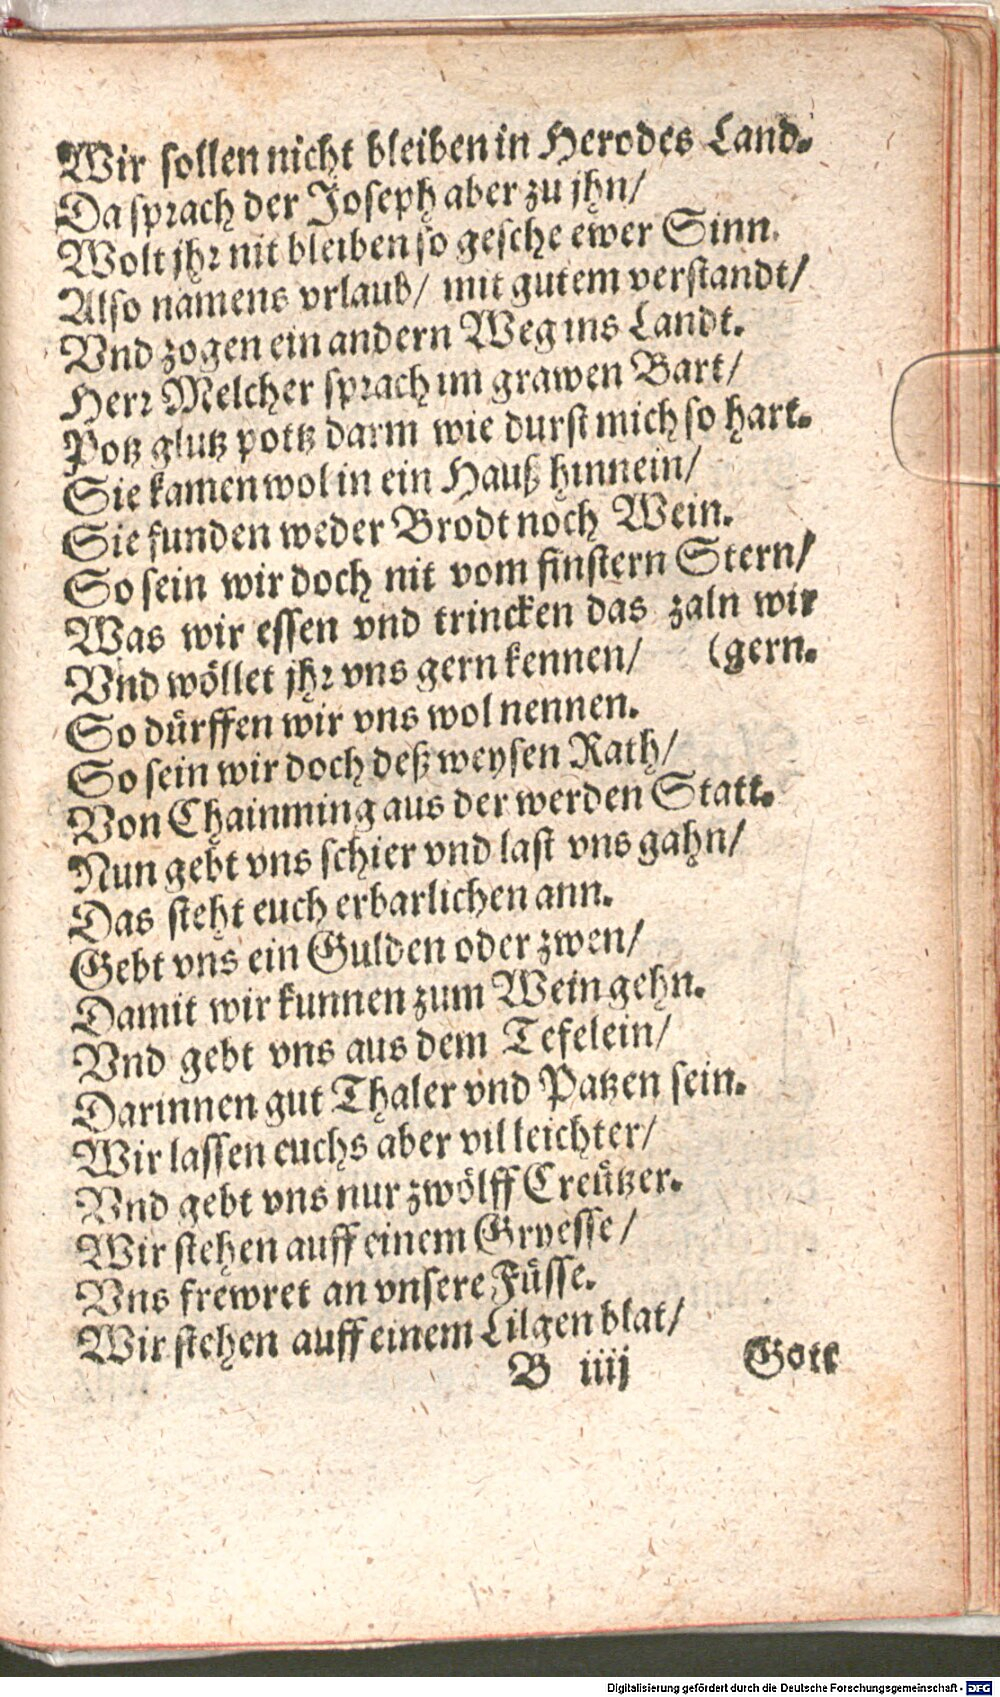 Wir sollen nicht bleiben in Herodes Land.
Da sprach der Joseph aber zu jhn/
Wolt jhr nit bleiben so gesche ewer Sinn.
Also namens vrlaub/ mit gutem verstandt/
Vnd zogen ein andern Weg ins Landt.
Herr Melcher sprach im grawen Bart/
Potz glutz pottz darm wie durst mich so hart.
Sie kamen wol in ein Hauß hinnein/
Sie funden weder Brodt noch Wein.
So sein wir doch nit vom finstern Stern/
Was wir essen vnd trincken das zaln wir
Vnd wöllet jhr vns gern kennen/ (gern.
So dürffen wir vns wol nennen.
So sein wir doch deß weysen Rath/
Von Chainming aus der werden Statt.
Nun gebt vns schier vnd last vns gahn/
Das steht euch erbarlichen ann.
Gebt vns ein Gulden oder zwen/
Damit wir kunnen zum Wein gehn.
Vnd gebt vns aus dem Tefelein/
Darinnen gut Thaler vnd Patzen sein.
Wir lassen euchs aber vil leichter/
Vnd gebt vns nur zwölff Creützer.
Wir stehen auff einem Gryesse/
Vns frewret an vnsere Füsse.
Wir stehen auff einem Lilgen blat/
B iiij Gott
Digitalisierung gefördert durch die Deutsche Forschungsgemeinschaft - DFG